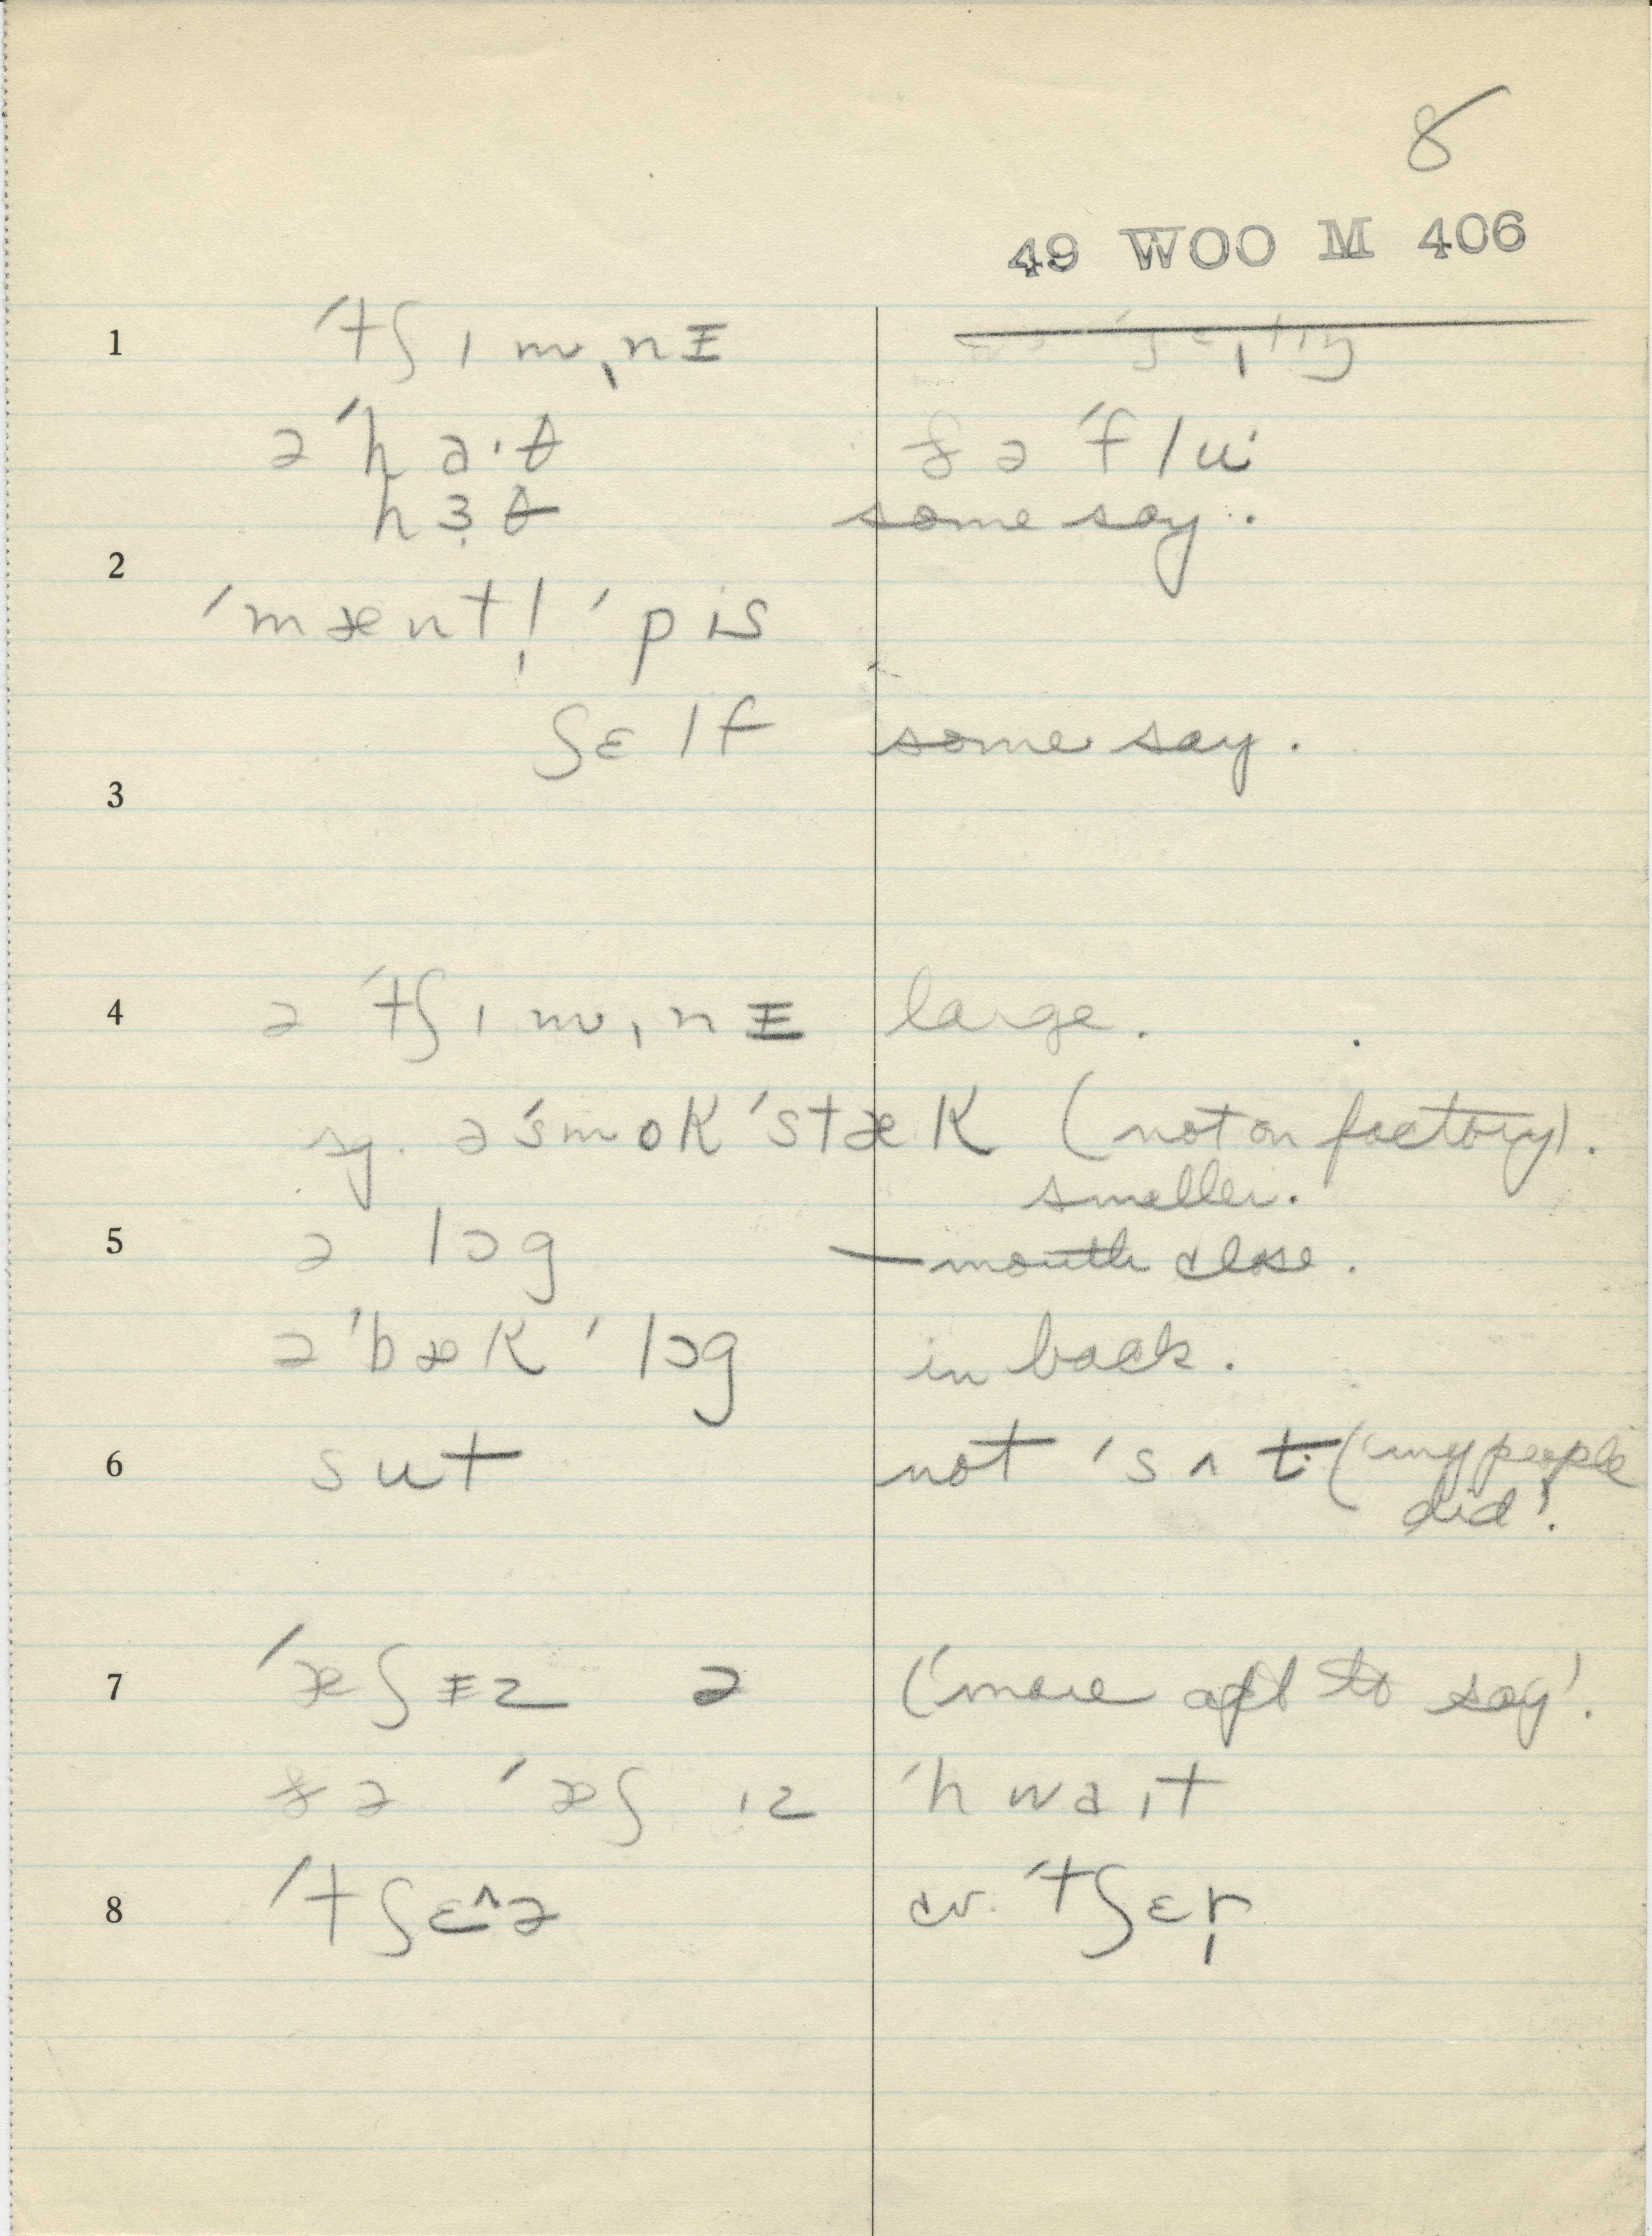 8
49 WOO M 406
1 ˈtʃɪmˌnɪ
əˈha·θ ðə ˈflu·
hɜθ some say.
2
ˈmæntl̩ ˈpis
ʃɛlf some say.
3
4 ə ˈtʃɪmˌnɪ large.
sg. ə ˈsmokˈstæk (not on factory).
smaller.
5 ə lɔg mouth close.
əˈbækˈlɔg in back.
6 sut not ˈsʌt ('my people
did'.
7 ˈæʃɪz ə ('more apt to say'.
ðə ˈæʃɪz ˈhwaɪt
8 ˈtʃɛ^ə cv. ˈtʃɛr̩